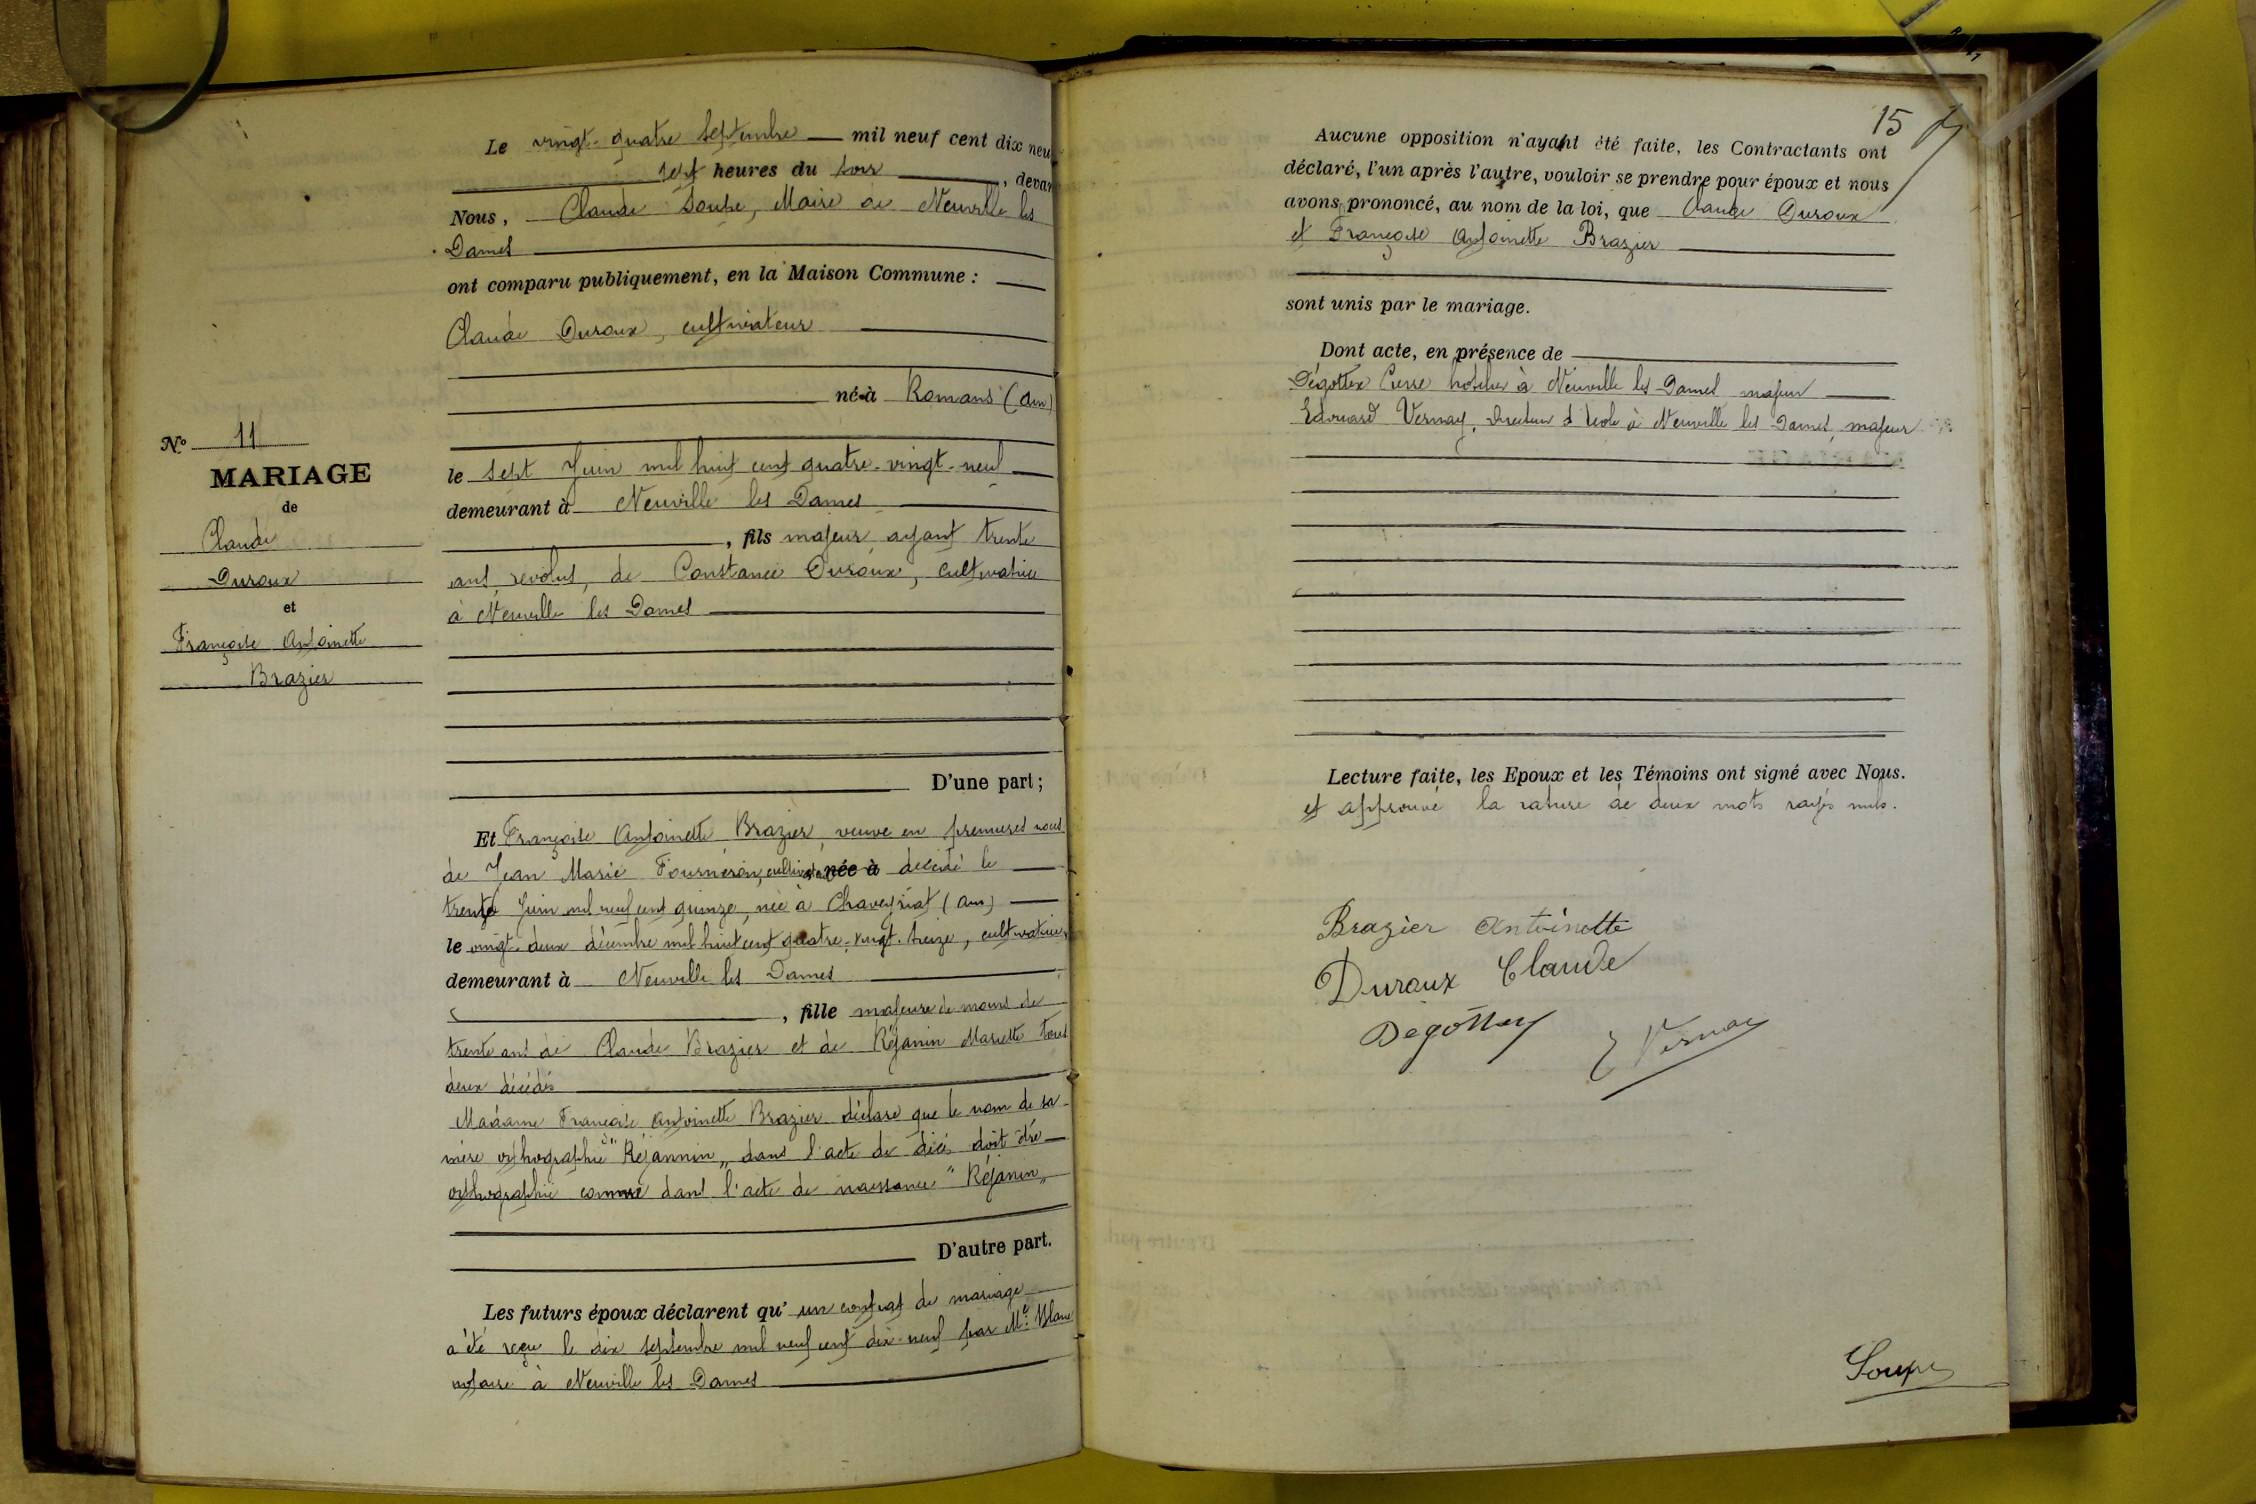 N° 11
MARIAGE
de
Claude
Duroux
et
Françoise Antoinette
Brazier
Le vingt-quatre Septembre mil neuf cent dix neu
sept heures du soir, devan
Nous, Claude Soupe, Maire de Neuville les
Dames
ont comparu publiquement, en la Maison Commune :
Claude Duroux, cultivateur
né à Romans (Ain)
le sept Juin mil huit cent quatre-vingt-neuf
demeurant à Neuville les Dames
, fils majeur, ayant trente
ans révolus, de Constance Duroux, cultivatrice
à Neuville les Dames
D'une part ;
Et Françoise Antoinette Brazier, veuve en premières noces
de Jean Marie Fournéron, cultivateur née à décédé le
trente Juin mil neuf cent quinze, née à Chaveyriat (Ain)
le vingt-deux décembre mil huit cent quatre-vingt-treize, cultivatrice,
demeurant à Neuville les Dames
, fille majeure de moins de
trente ans de Claude Brazier et de Réjanin Mariette tous
deux décédés
Madame Françoise Antoinette Brazier déclare que le nom de sa
mère orthographié "Réjannin" dans l'acte de décès doit être
orthographié comme dans l'acte de naissance "Réjanin"
D'autre part.
Les futurs époux déclarent qu'un contrat de mariage
a été reçu le dix septembre mil neuf cent dix-neuf par Me Blanc
notaire à Neuville les Dames
15
Aucune opposition n'ayant été faite, les Contractants ont
déclaré, l'un après l'autre, vouloir se prendre pour époux et nous
avons prononcé, au nom de la loi, que Claude Duroux
et Françoise Antoinette Brazier
sont unis par le mariage.
Dont acte, en présence de
Dégottex Pierre hôtelier à Neuville les Dames majeur
Edouard Vernay, Directeur d'école à Neuville les Dames, majeur
Lecture faite, les Epoux et les Témoins ont signé avec Nous.
et approuvé la rature de deux mots rayés nuls.
Brazier Antoinette
Duroux Claude
Dégottex
E Vernay
Soupe